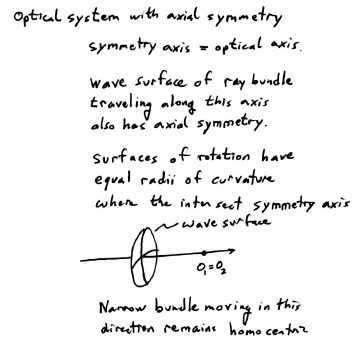 Optical system with axial symmetry
symmetry axis = optical axis.
wave surface of ray bundle
traveling along this axis
also has axial symmetry.
Surfaces of rotation have
equal radii of curvature
where the intersect symmetry axis
wave surface
O₁=O₂
Narrow bundle moving in this
direction remains homocentric